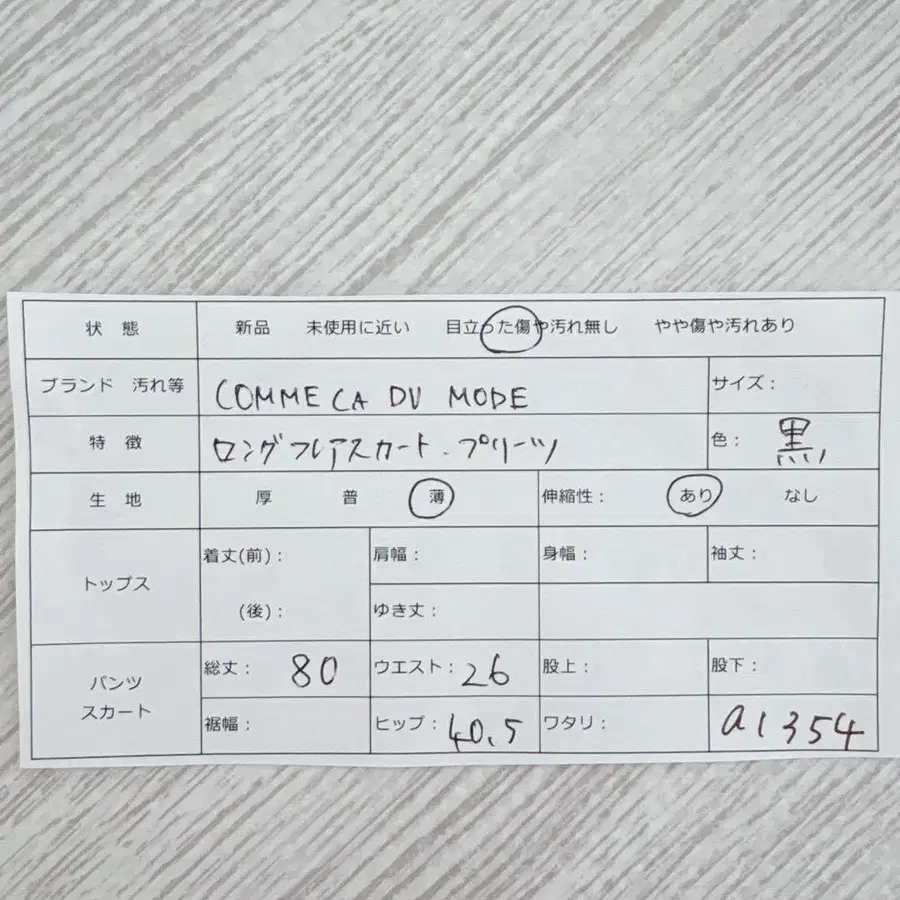 状 態 新品 未使用に近い 目立った傷や汚れ無し やや傷や汚れあり
ブランド 汚れ等 COMME CA DU MODE サイズ：
特 徴 ロングフレアスカート．プリーツ 色： 黒
生 地 厚 普 薄 伸縮性： あり なし
トップス 着丈(前)： 肩幅： 身幅： 袖丈：
(後)： ゆき丈：
パンツ スカート 総丈： 80 ウエスト： 26 股上： 股下：
裾幅： ヒップ： 40.5 ワタリ： a1354